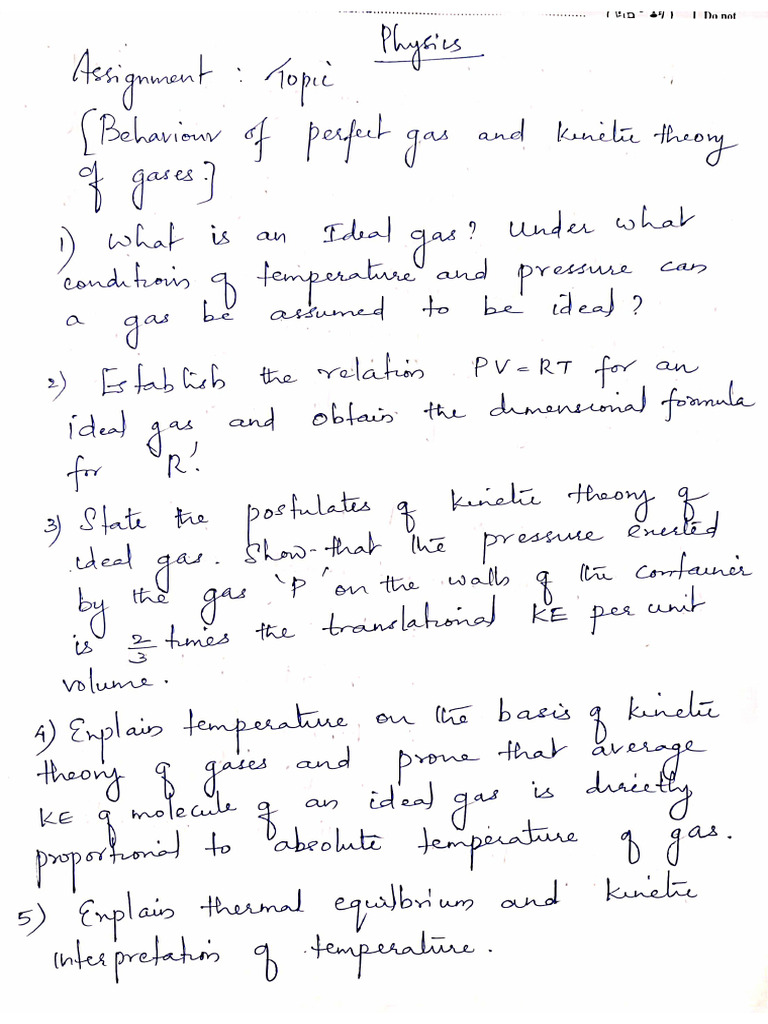 Do not
Physics
Assignment : Topic
[Behaviour of perfect gas and kinetic theory
of gases.]
1) What is an Ideal gas? Under what
conditions of temperature and pressure can
a gas be assumed to be ideal?
2) Establish the relation PV = RT for an
ideal gas and obtain the dimensional formula
for 'R'.
3) State the postulates of kinetic theory of
ideal gas. Show that the pressure exerted
by the gas 'P' on the walls of the container
is 2/3 times the translational KE per unit
volume.
4) Explain temperature on the basis of kinetic
theory of gases and prove that average
KE of molecule of an ideal gas is directly
proportional to absolute temperature of gas.
5) Explain thermal equilbrium and kinetic
interpretation of temperature.